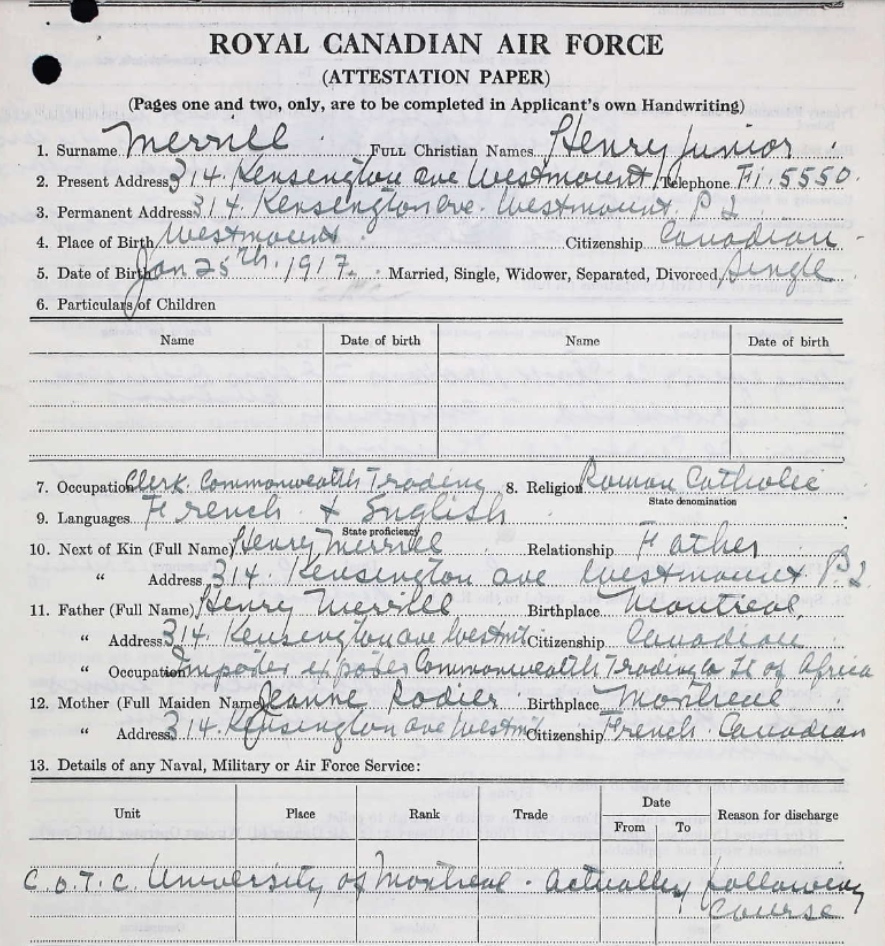 ROYAL CANADIAN AIR FORCE
(ATTESTATION PAPER)
(Pages one and two, only, are to be completed in Applicant's own Handwriting)
1. Surname Merrill FULL Christian Names Henry Junior
2. Present Address 314. Kensington ave Westmount Telephone Fi. 5550.
3. Permanent Address 314. Kensington ave. Westmount. P Q
4. Place of Birth Westmount. Citizenship Canadian
5. Date of Birth Jan 25th. 1917. Married, Single, Widower, Separated, Divorced Single
6. Particulars of Children
Name Date of birth Name Date of birth
7. Occupation Clerk. Commonwealth Trading 8. Religion Roman Catholic
State denomination
9. Languages French & English
State proficiency
10. Next of Kin (Full Name) Henry Merrill Relationship Father
" Address 314. Kensington ave Westmount. P.Q.
11. Father (Full Name) Henry Merrill Birthplace Montreal,
" Address 314. Kensington ave Westmt Citizenship Canadian
" Occupation Impoter expoter Commonwealth Trading Co Lt of Africa
12. Mother (Full Maiden Name) Jeanne Rodier Birthplace Montreal
" Address 314. Kensington ave Westmt Citizenship French. Canadian
13. Details of any Naval, Military or Air Force Service:
Unit Place Rank Trade Date Reason for discharge
From To
C.O.T.C. University of Montreal - actually following
course